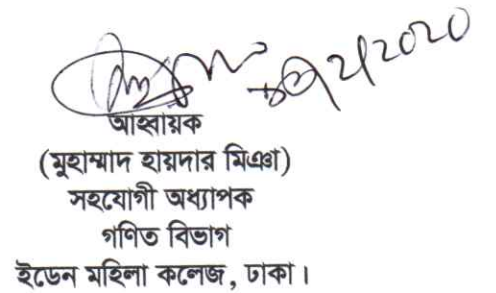 আহ্বায়ক
(মুহাম্মাদ হায়দার মিঞা)
সহযোগী অধ্যাপক
গণিত বিভাগ
ইডেন মহিলা কলেজ, ঢাকা।